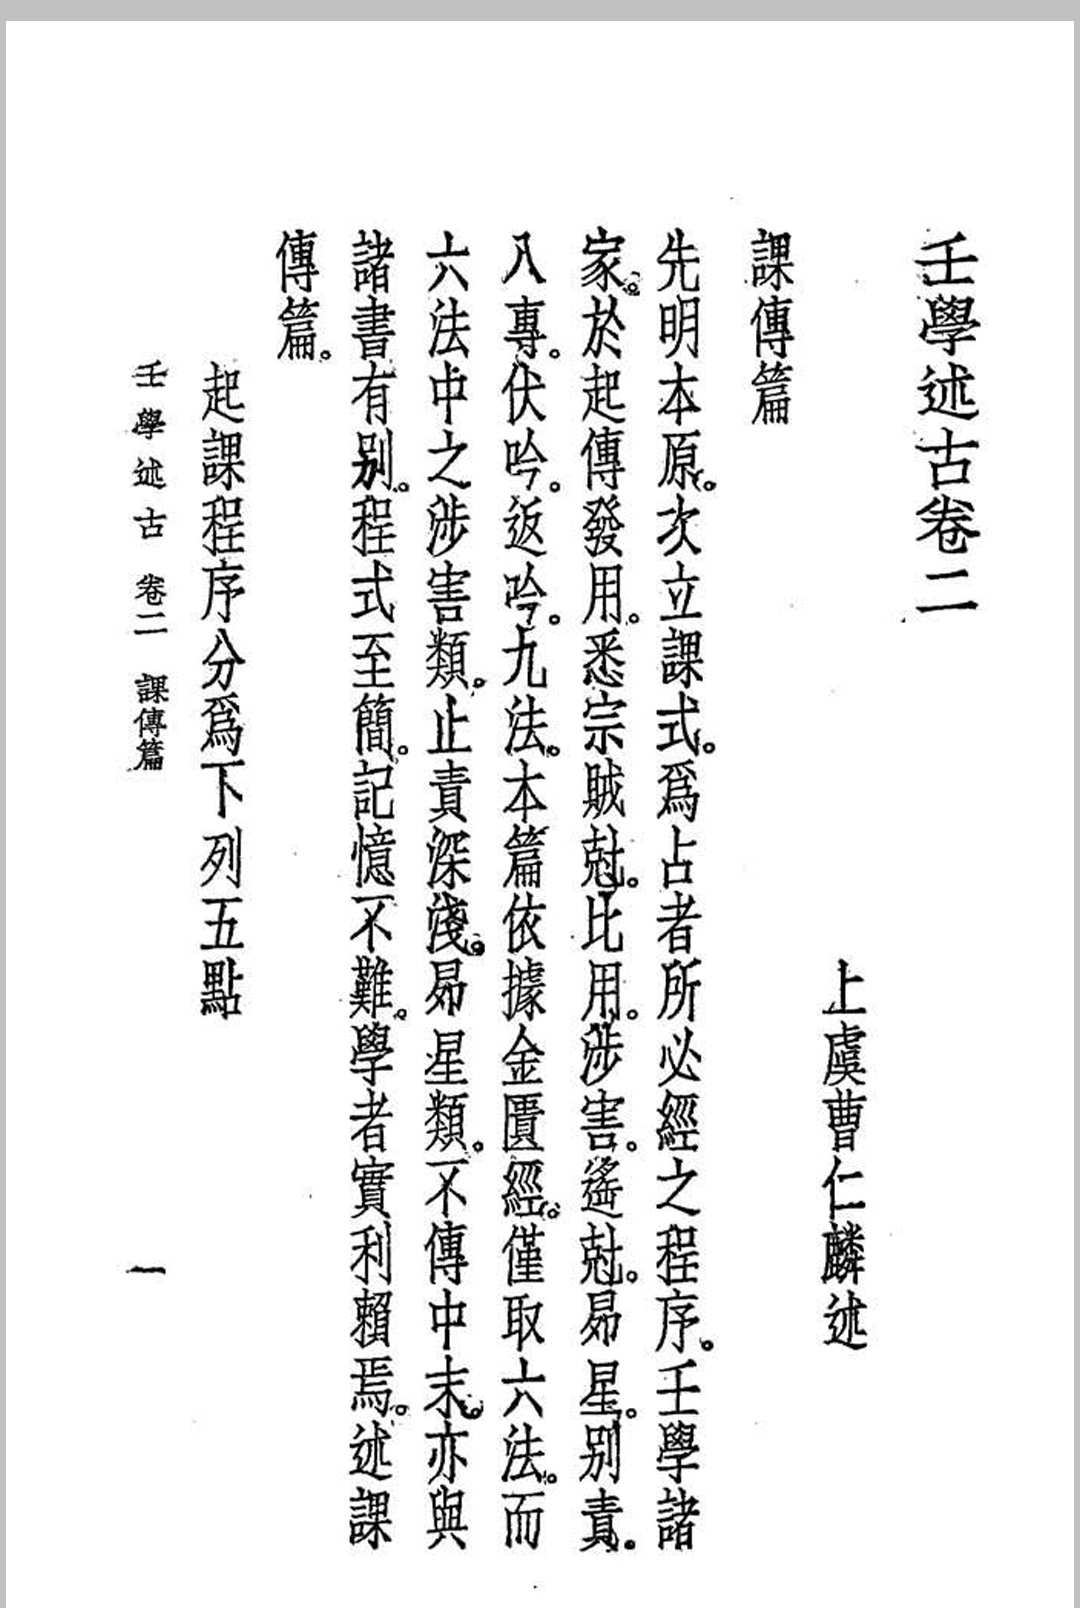 壬學述古卷二
上虞曹仁麟述
課傳篇
先明本原。次立課式。爲占者所必經之程序。壬學諸
家。於起傳發用。悉宗賊尅。比用。涉害。遙尅。昴星。别責。
八專。伏吟。返吟。九法。本篇依據金匱經。僅取六法。而
六法中之涉害類。止責深淺。昴星類。不傳中末。亦與
諸書有别。程式至簡。記憶不難。學者實利賴焉。述課
傳篇。
起課程序分爲下列五點
壬學述古 卷二 課傳篇 一